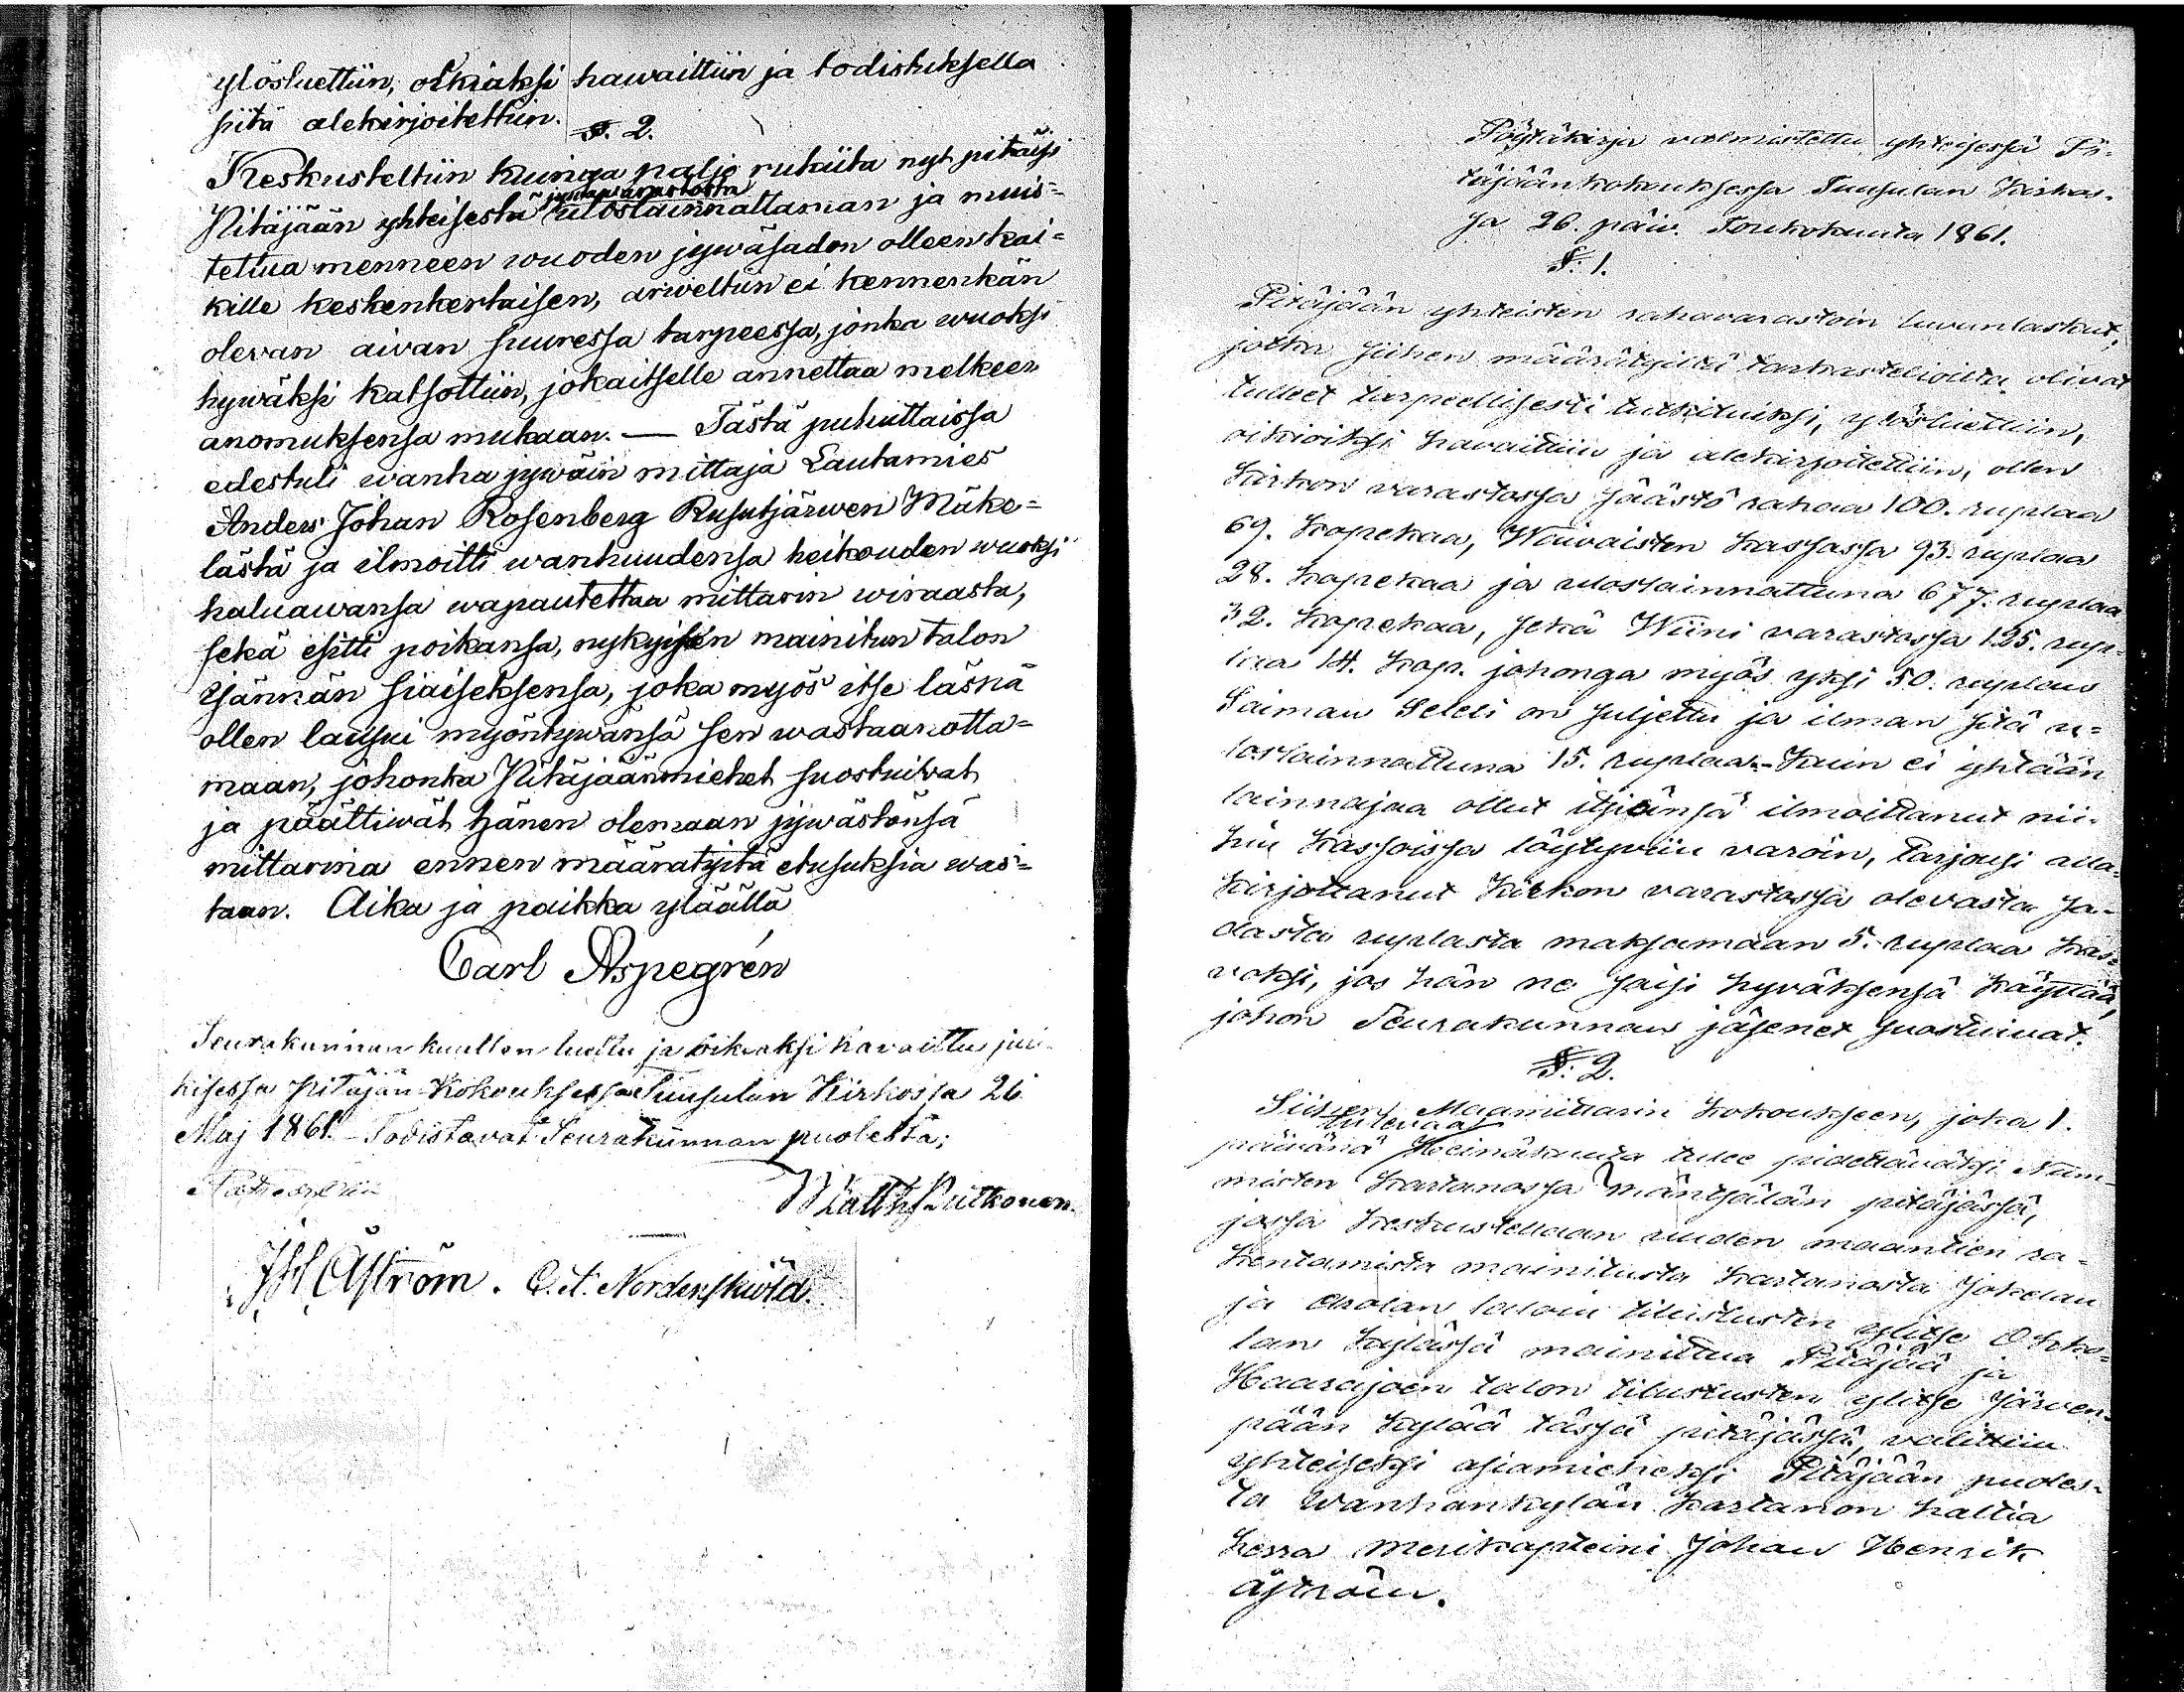 ylösluettiin, oikiaksi hawaittiin ja todistuksella
sitä alekirjoitettiin.
§. 2.
Keskusteltiin kuinga paljo rukiita nyt pitäisi
Pitäjään yhteisestä jyväwarastosta uloslainnattaman ja muis=
tettua menneen wuoden jywäsadon olleen kai=
kille keskenkertaisen, arweltiin ei kennenkän
olevan aivan suuressa tarpeessa, jonka wuoksi
hywäksi katsottiin, jokaitselle annettaa melkeen
anomuksensa mukaan. — Tästä puhuttaissa
edestuli wanha jywäin mittaja Lautamies
Anders Johan Rosenberg Rusutjärwen Mäke=
lästä ja ilmoitti wanhuudensa heikouden wuoksi
haluawansa wapautettaa mittarin wiraasta,
sekä esitti poikansa, nykyisen mainitun talon
Isännän siaiseksensa, joka myös itse läsnä
ollen lausui myöntywänsä sen wastaanotta=
maan, johonka Pitäjäänmiehet suostuivat
ja päättiwät hänen olemaan jywästönsä
mittarina ennen määrätyitä etusuksia was=
taan. Aika ja paikka yläällä
Carl Aspegrén
Seurakunnan kuullen luettu ja oikiaksi havaittu jul-
kisessa pitäjän Kokouksessa Tuusulan Kirkossa 26
Maj 1861. Todistavat Seurakunnan puolesta;
Matts Puttonen.
J H Åström. C. A. Nordenskiöld.
Pöytäkirja valmistettu yhteisessä Pi-
täjäänkokouksessa Tuusulan Kirkos-
sa 26. päiv. Toukokuuta 1861.
§. 1.
Pitäjään yhteisten rahavarastoin luvunlaskut,
jotka siihen määrätyiltä tarkastelioilta olivat
tulleet tarpeellisesti tutkituiksi, ylösluettiin,
oikioiksi havaittiin ja alekirjoitettiin, ollen
Kirkon varastossa säästö rahaa 100. ruplaa
69. kopekaa, Waivaisten kassassa 93. ruplaa
28. kopekaa ja uloslainnattuna 677. ruplaa
32. kopekaa, sekä Wiini varastossa 125. rup-
laa 14. kop. johonga myös yksi 50. ruplan
Saiman Seteli on suljettu ja ilman sitä u=
loslainnattuna 15. ruplaa. - Kuin ei yhtään
lainnajaa ollut itsiänsä ilmoittanut nii-
hin kassoissa löytyviin varoin, tarjousi alla-
kirjottanut Kirkon varastossa olevasta sa-
dasta ruplasta maksamaan 5. ruplaa kas=
voksi, jos hän ne saisi hyväksensä käyttää,
johon Seurakunnan jäsenet suostuivat.
§. 2.
Siihen Maamittarin kokoukseen, joka 1.
päivänä tulevaa Heinäkuuta tulee pidettäväksi Num-
misten kartanossa Mäntsälän pitäjässä,
jossa keskustellaan uuden maantien ra-
kentamista mainitusta kartanosta Jokelan
ja Aholan taloin tilustusten ylitse Ohko=
lan kylässä mainittua Pitäjää ja
Haarajoen talon tilustusten ylitse Järwen-
pään kylää tässä pitäjässä, valittiin
yhteiseksi asiamieheksi Pitäjään puoles-
ta Wanhankylän kartanon haltia
herra Merikapteini Johan Henrik
Åström.